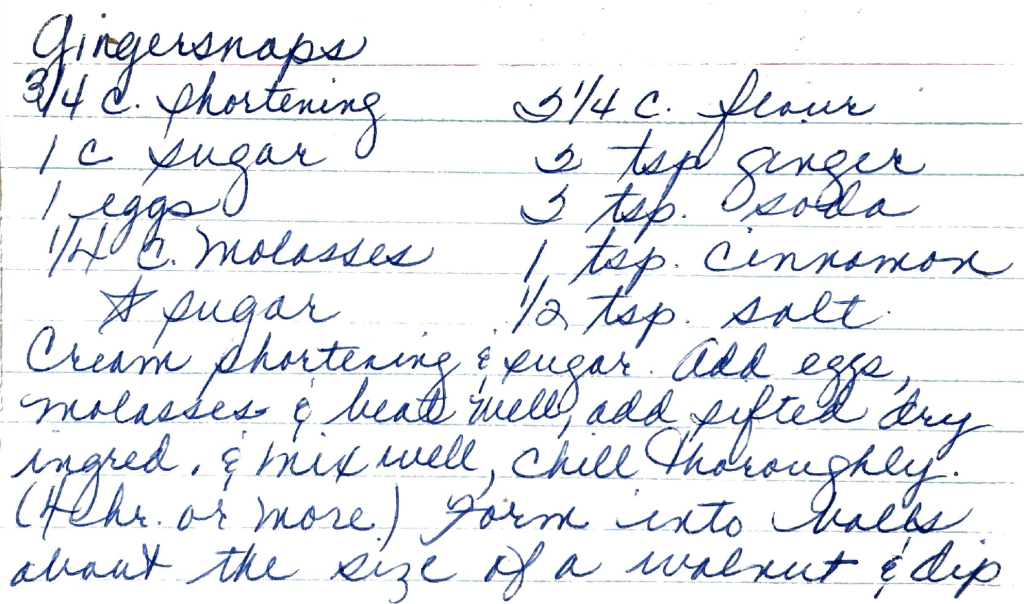 Gingersnaps
3/4 c. shortening 2 1/4 c. flour
1 c sugar 2 tsp ginger
1 eggs 2 tsp. soda
1/4 c. molasses 1 tsp. cinnamon
* sugar 1/2 tsp. salt
Cream shortening & sugar. Add eggs,
molasses & beat well, add sifted dry
ingred. & mix well, chill thoroughly.
(4 hr. or more) Form into balls
about the size of a walnut & dip